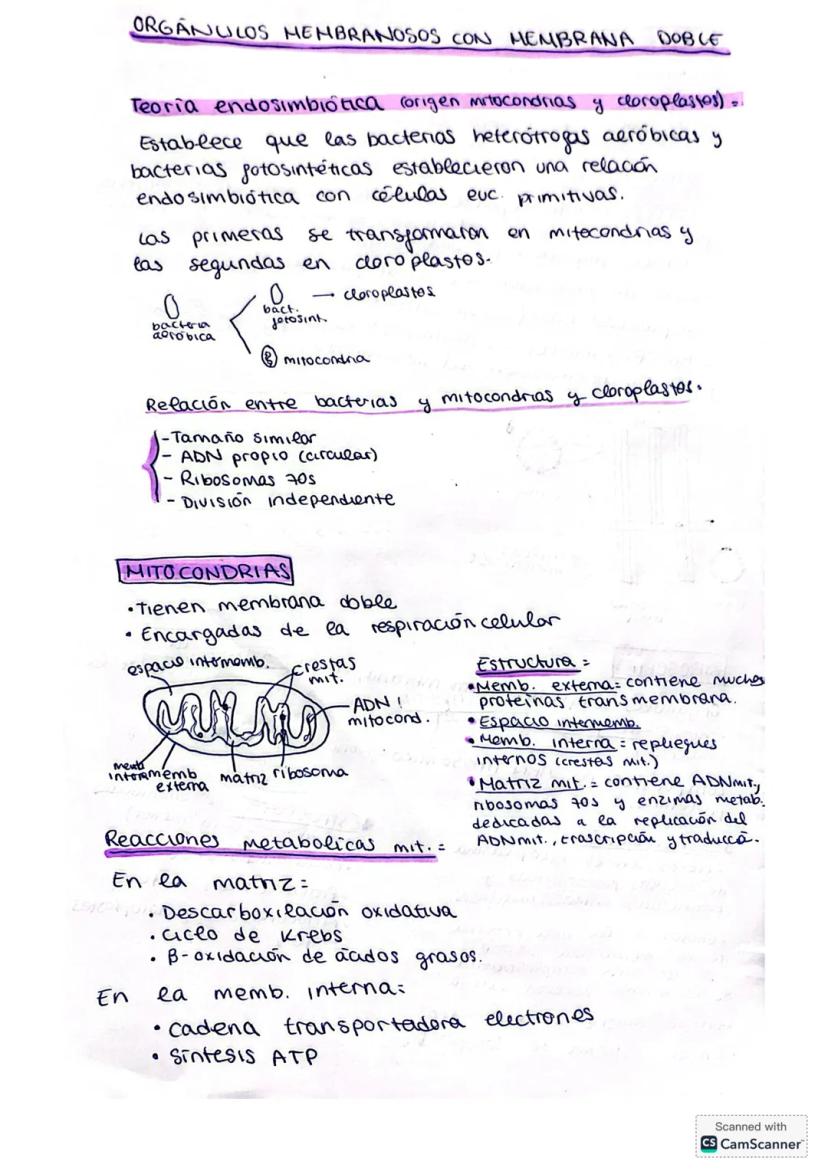 ORGÁNULOS MEMBRANOSOS CON MEMBRANA DOBLE
Teoría endosimbiótica (origen mitocondrias y cloroplastos) =
Establece que las bacterias heterótrogas aeróbicas y
bacterias fotosintéticas establecieron una relación
endosimbiótica con células euc. primitivas.
Las primeras se transformaron en mitocondrias y
las segundas en cloroplastos.
bacteria
aeróbica
bact.
fotosint.
→ cloroplastos
mitocondria
Relación entre bacterias y mitocondrias y cloroplastos.
- Tamaño similar
- ADN propio (circular)
- Ribosomas 70s
- División independiente
MITOCONDRIAS
• Tienen membrana doble
• Encargadas de la respiración celular
espacio intermemb.
crestas
mit.
ADN
mitocond.
memb
interna
memb
externa
matriz
ribosoma
Estructura =
• Memb. externa = contiene muchas
proteínas transmembrana.
• Espacio intermemb.
• Memb. interna = repliegues
internos (crestas mit.)
• Matriz mit. = contiene ADNmit,
ribosomas 70s y enzimas metab.
dedicadas a la replicación del
ADNmit., trascripción y traducció.
Reacciones metabolicas mit. =
En la matriz =
• Descarboxilación oxidativa
• Ciclo de Krebs
• β-oxidación de ácidos grasos.
En la memb. interna =
• cadena transportadora electrones
• síntesis ATP
Scanned with
CS CamScanner